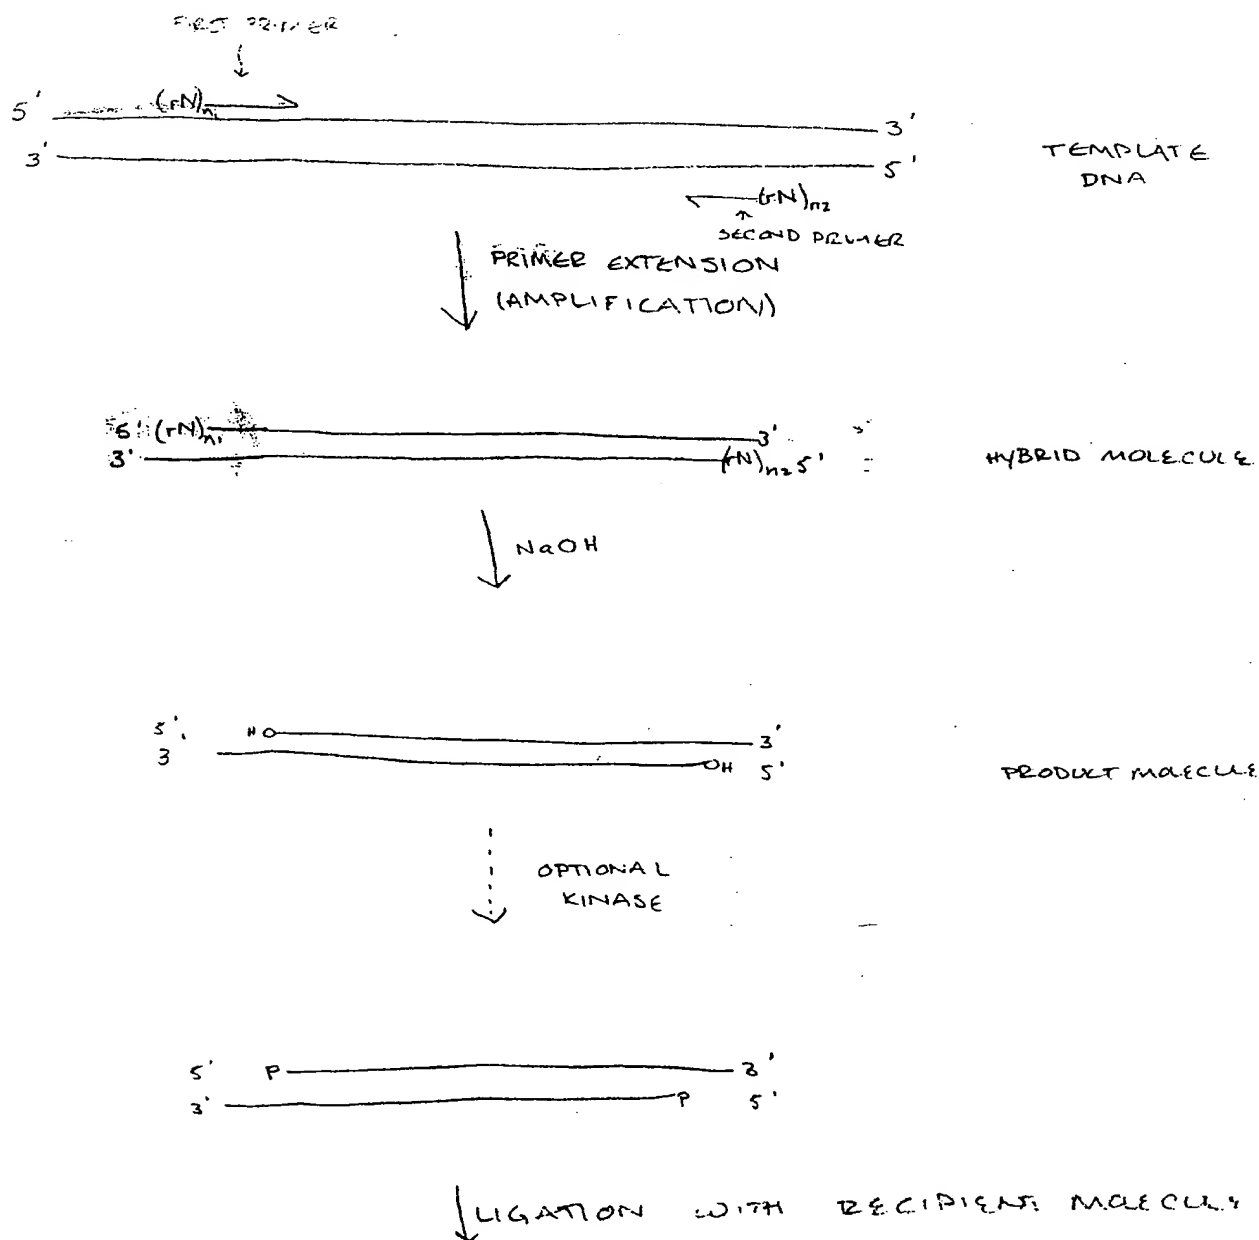 FIRST PRIMER
5' (rN)n1 3'
3' 5'
TEMPLATE
DNA
(rN)n2
SECOND PRIMER
PRIMER EXTENSION
(AMPLIFICATION)
5' (rN)n1 3'
3' (rN)n2 5'
HYBRID MOLECULE
NaOH
5' HO 3'
3 OH 5'
PRODUCT MOLECULE
OPTIONAL
KINASE
5' P 3'
3' P 5'
LIGATION WITH RECIPIENT MOLECULE